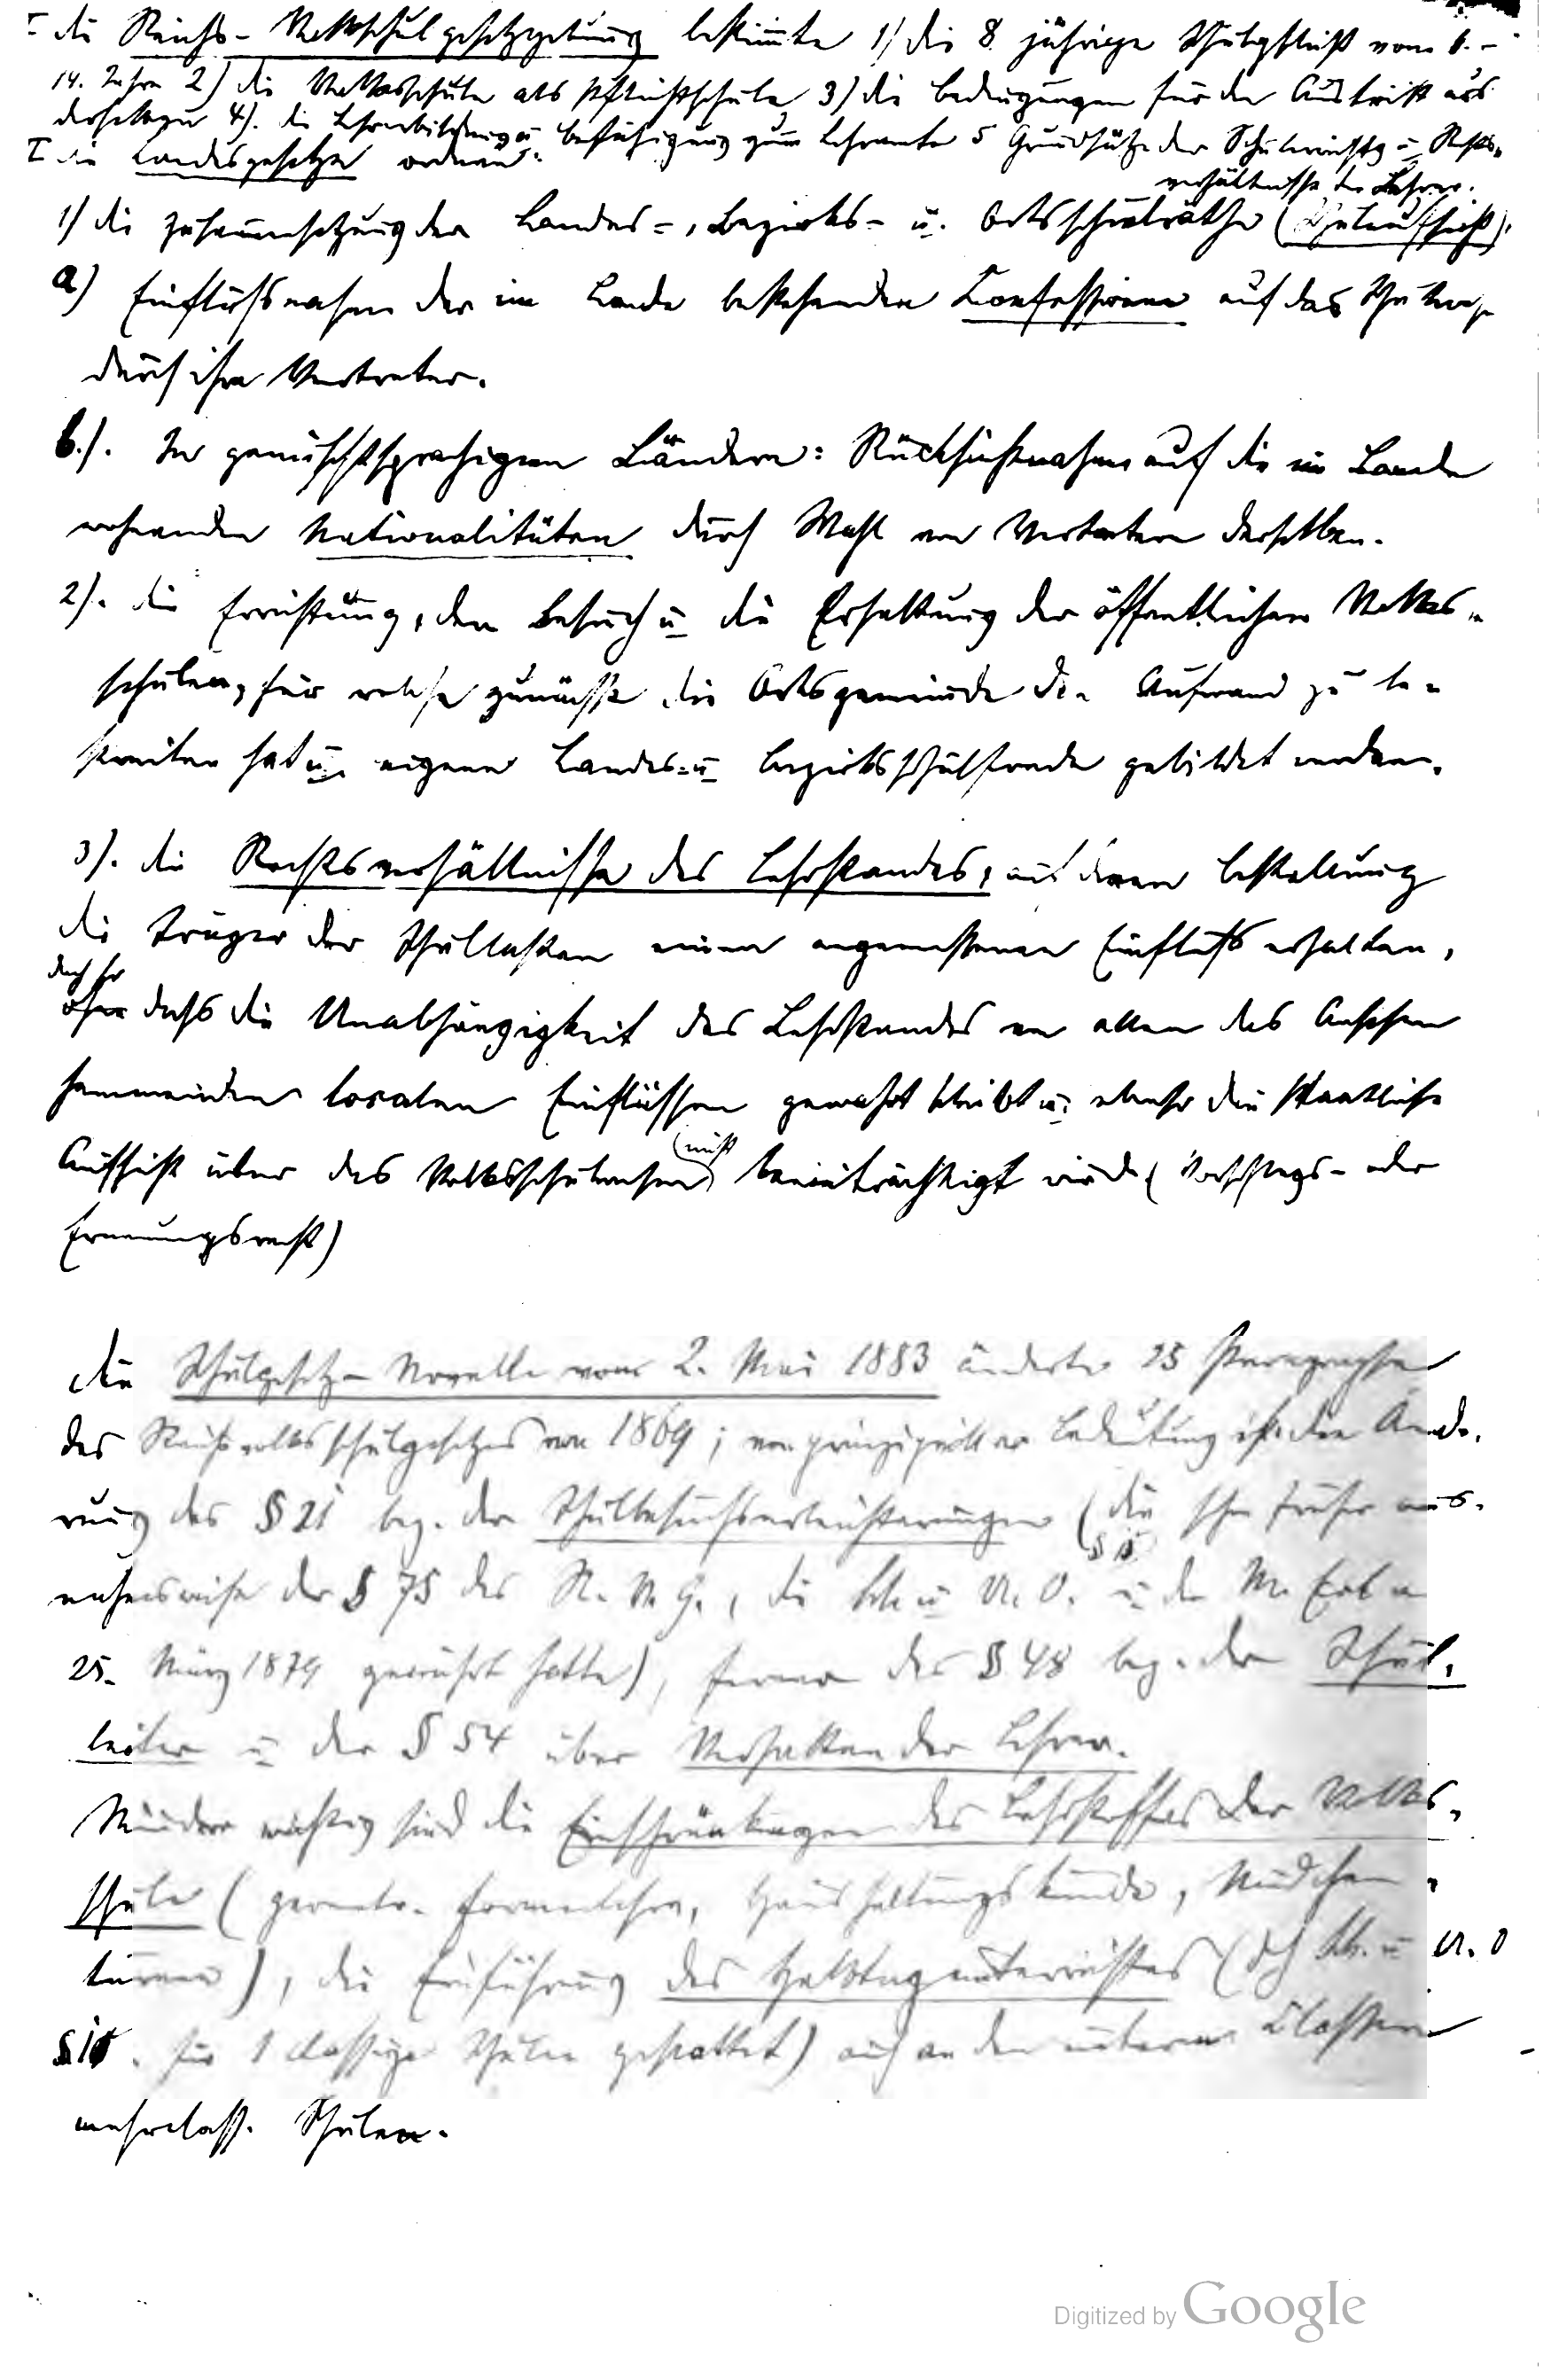 I die Reichs-Volksschulgesetzgebung bestimmte 1) die 8 jährige Schulpflicht vom 6.-
14. Jahre 2) die Volksschule als Pflichtschule 3) die Bedingungen für den Austritt aus
derselben 4). die Lehrerbildung u Befähigung zum Lehramte 5 Grundsätze der Schuleinrichtg u Rechts-
verhältnisse der Lehrer.
I die Landesgesetze ordnen:
1) die Zusammensetzung der Landes-, Bezirks- u. Ortsschulräthe (Schulaufsicht).
a) Einflussnahme der im Lande bestehenden Confessionen auf das Schulwes.
durch ihre Vertreter.
b.). In gemischtsprachigen Ländern: Rücksichtnahme auf die im Lande
wohnenden Nationalitäten durch Wahl von Vertretern derselben.
2). die Errichtung, den Besuch u die Erhaltung der öffentlichen Volks-
schulen, für welche zunächst die Ortsgemeinde den Aufwand zu be-
streiten hat u. eigene Landes- u Bezirksschulfonde gebildet werden.
3). die Rechtsverhältnisse des Lehrstandes, auf deren Bestellung
die Träger der Schullasten einen angemessenen Einfluss erhalten,
doch so
ohne dass die Unabhängigkeit des Lehrstandes von allen das Ansehen
hemmenden localen Einflüssen gewahrt bleibt u. ebenso die staatliche
Aufsicht über das Volksschulwesen (nicht) beeinträchtigt wird (Vorschlags- oder
Ernennungsrecht)
Die Schulgesetz-Novelle vom 2. Mai 1883 änderte 25 Paragraphe
des Reichsvolksschulgesetzes von 1869; von prinzipieller Bedeutung ist die Ände-
rung des § 21 bez. der Schulbesuchserleichterungen (die schon früher aus-
nahmsweise der § 75 des R. V. G., die Sch u U. O. § 10 u der M. Erl v
25. März 1879 gewährt hatte), ferner des § 48 bez. der Schul-
leiter u der § 54 über Verhalten der Lehrer.
Minder wichtig sind die Einschränkungen des Lehrstoffes der Volks-
schule (geometr. Formenlehre, Haushaltungskunde, Mädchen-
turnen), die Einführung des Halbtagunterrichtes (dch Sch. u U. O
§ 10. für 1 classige Schulen gestattet) auch an den unteren Classen
mehrclass. Schulen.
Digitized by Google